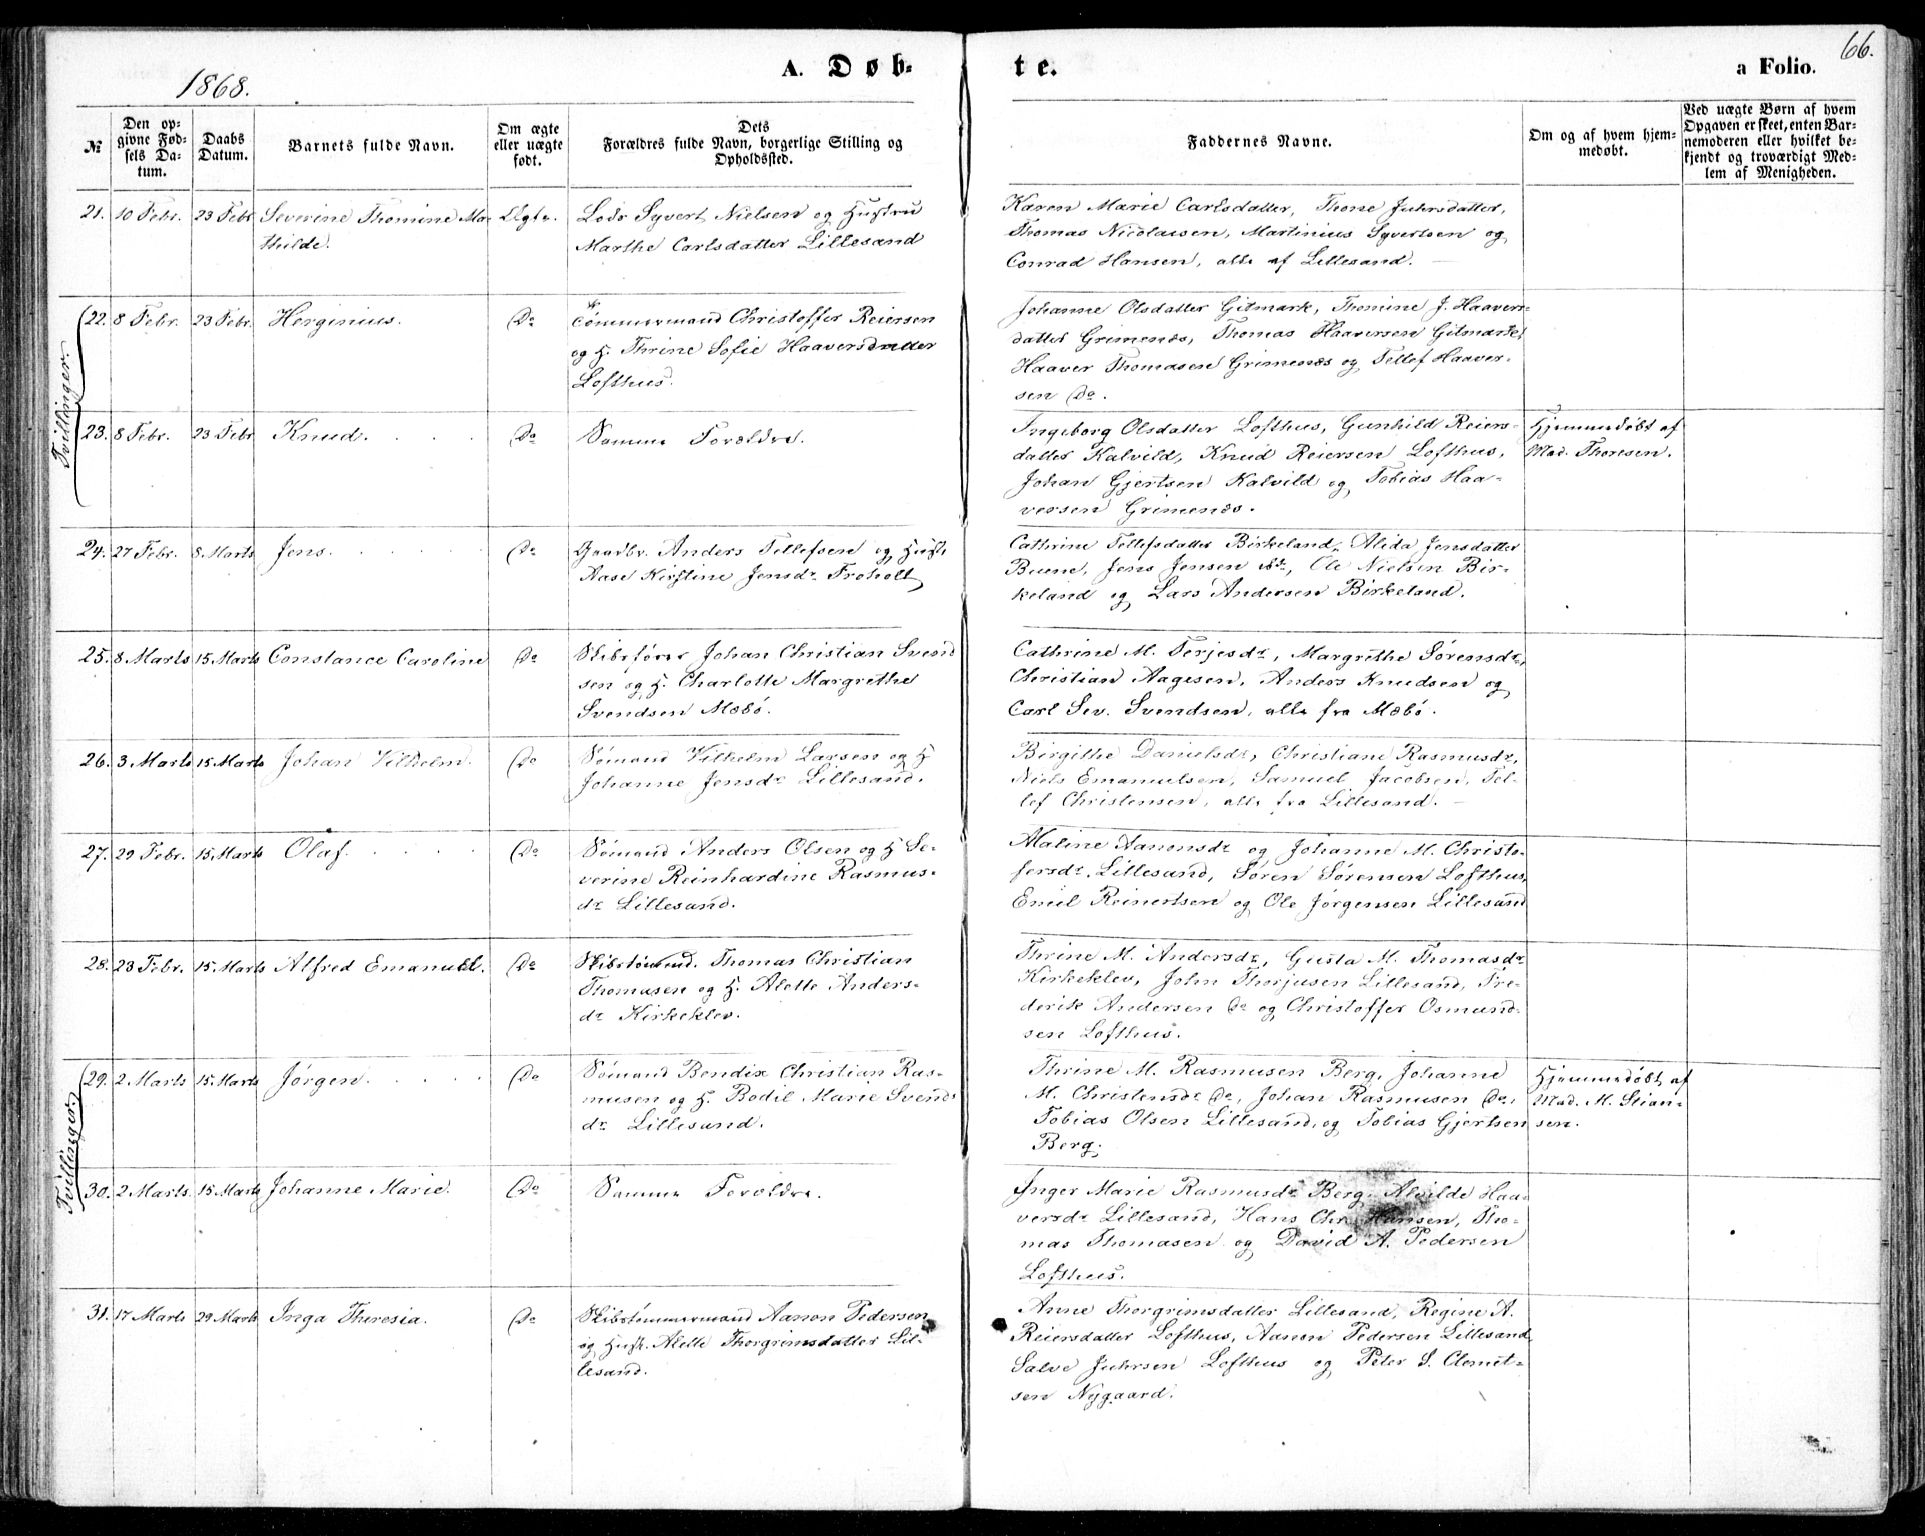 1868.
A. Døb-
te.
66.
a Folio.
№
Den op-
givne Fød-
sels Da-
tum.
Daabs
Datum.
Barnets fulde Navn.
Om ægte
eller uægte
født.
Dets
Forældres fulde Navn, borgerlige Stilling og
Opholdssted.
Faddernes Navne.
Om og af hvem hjem-
medøbt.
Ved uægte Børn af hvem
Opgaven er skeet, enten Bar-
nemoderen eller hvilket be-
kjendt og troværdigt Med-
lem af Menigheden.
21. 10 Febr. 23 Febr Severine Thomine Ma-
thilde.
Ægte.
Lods Syvert Nielsen og Hustru
Marthe Carlsdatter Lillesand
Karen Marie Carlsdatter, Thone Juhrsdatter,
Thomas Nicolaisen, Martinius Syvertsen og
Conrad Hansen, alle af Lillesand.
Tvillinger.
22. 8 Febr. 23 Febr. Herginius. Do
Tömmermand Christoffer Reiersen
og H. Thrine Sofie Haaversdatter
Lofthus.
Johanne Olsdatter Gitmark, Thomine J. Haavers-
datter Grimenæs, Thomas Haaversen Gitmark,
Haaver Thomasen Grimenæs og Tellef Haaver-
sen Do.
23. 8 Febr. 23 Febr Knud. Do
Samme Forældre.
Ingeborg Olsdatter Lofthus, Gunhild Reiers-
datter Kalvild, Knud Reiersen Lofthus,
Johan Gjertsen Kalvild og Tobias Haa-
versen Grimenæs.
Hjemmedøbt af
Mad. Thoresen.
24. 27 Febr. 8 Marts Jens. Do
Gaardbr. Anders Tellefsen og Hustr.
Aase Kirstine Jensdr Froholt
Cathrine Tellefsdatter Birkeland, Alida Jensdatter
Buene, Jens Jensen , Ole Nielsen Bir-
keland og Lars Andersen Birkeland.
25. 8 Marts 15 Marts Constance Caroline Do
Skibsfører Johan Christian Svend
sen og H. Charlotte Margrethe
Svendsen Mæbö.
Cathrine M. Terjesdr, Margrethe Sørensdr,
Christian Aagesen, Anders Knudsen og
Carl Sev. Svendsen, alle fra Mæbö.
26. 3 Marts 15 Marts Johan Vilhelm. Do
Sömand Vilhelm Larsen og H
Johanne Jensdr Lillesand.
Birgithe Danielsdr, Christiane Rasmusdr,
Niels Emanuelsen, Samuel Jacobsen, Tel-
lef Christensen, alle fra Lillesand.
27. 29 Febr. 15 Marts Olaf. Do
Sömand Anders Olsen og H Se-
verine Reinhardine Rasmus-
dr Lillesand.
Maline Aanonsdr og Johanne M. Christo-
fersdr. Lillesand, Søren Sørensen Lofthus,
Emil Reinertsen og Ole Jørgensen Lillesand
28. 23 Febr. 15 Marts Alfred Emanuel. Do
Thomas Christian
Thomasen og H. Alette Anders-
dr Kirkeklev.
Thrine M. Andersdr, Gusta M. Thomasdr
Kirkeklev, John Thorjusen Lillesand, Fre-
derik Andersen Do og Christoffer Osmund-
sen Lofthus.
Tvillinger.
29. 2 Marts 15 Marts Jørgen. Do
Sömand Bendix Christian Ras-
musen og H. Bodil Marie Svends
dr Lillesand.
Thrine M. Rasmusen Berg, Johanne
M. Christensdr Do, Johan Rasmusen Do,
Tobias Olsen Lillesand, og Tobias Gjertsen
Berg.
Hjemmedøbt af
Mad. M. Stian-
sen.
30. 2 Marts 15 Marts Johanne Marie. Do
Samme Forældre.
Inger Marie Rasmusdr Berg, Alvilde Haa-
versdr Lillesand, Hans Chr. Hansen, Tho-
mas Thomasen og David A. Pedersen
Lofthus.
31. 17 Marts 29 Marts Inga Theresia. Do
Skibstömmermand Aanon Pedersen
og Hustr. Alette Thorgrimsdatter Lil-
lesand.
Anne Thorgrimsdatter Lillesand, Regine A.
Reiersdatter Lofthus, Aanon Pedersen Lillesand,
Salve Juhrsen Lofthus og Peter S. Clemet-
sen Nygaard.